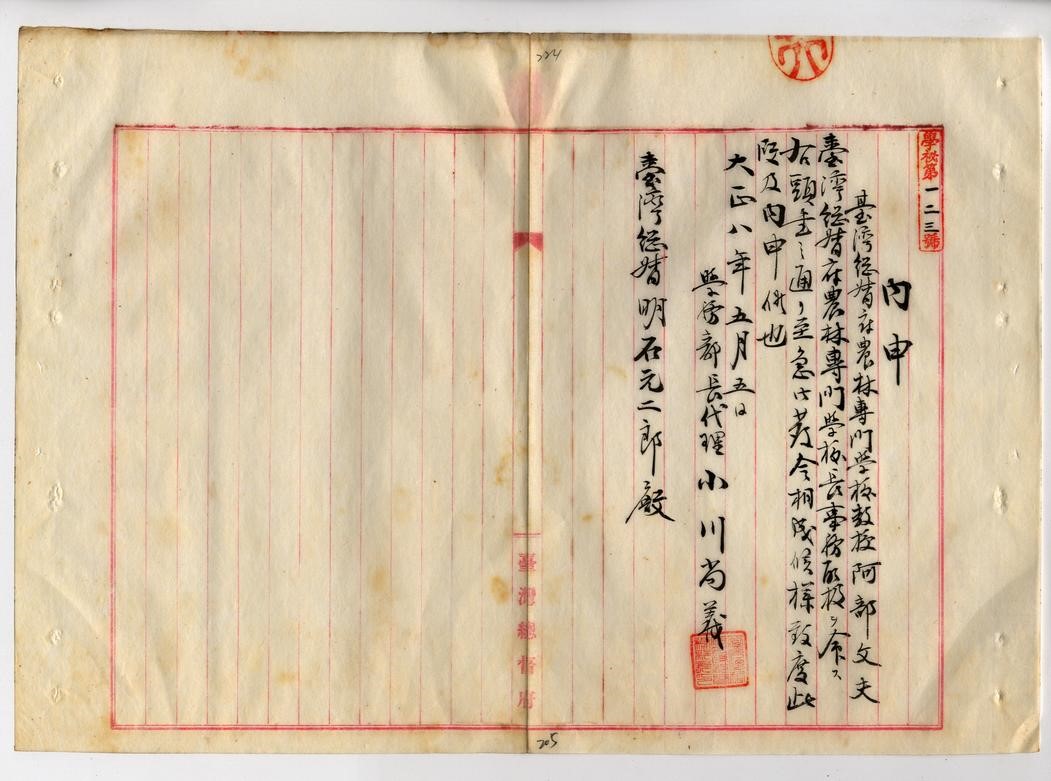 學秘第一二三號
内申
臺灣總督府農林專門學校教授阿部文夫
臺灣總督府農林專門學校長事務取扱ヲ命ス
右頭書之通リ至急御發令相成候様致度此
段及内申候也
大正八年五月五日
學務部長代理小川尚義
臺灣總督明石元二郎殿
臺灣總督府
205